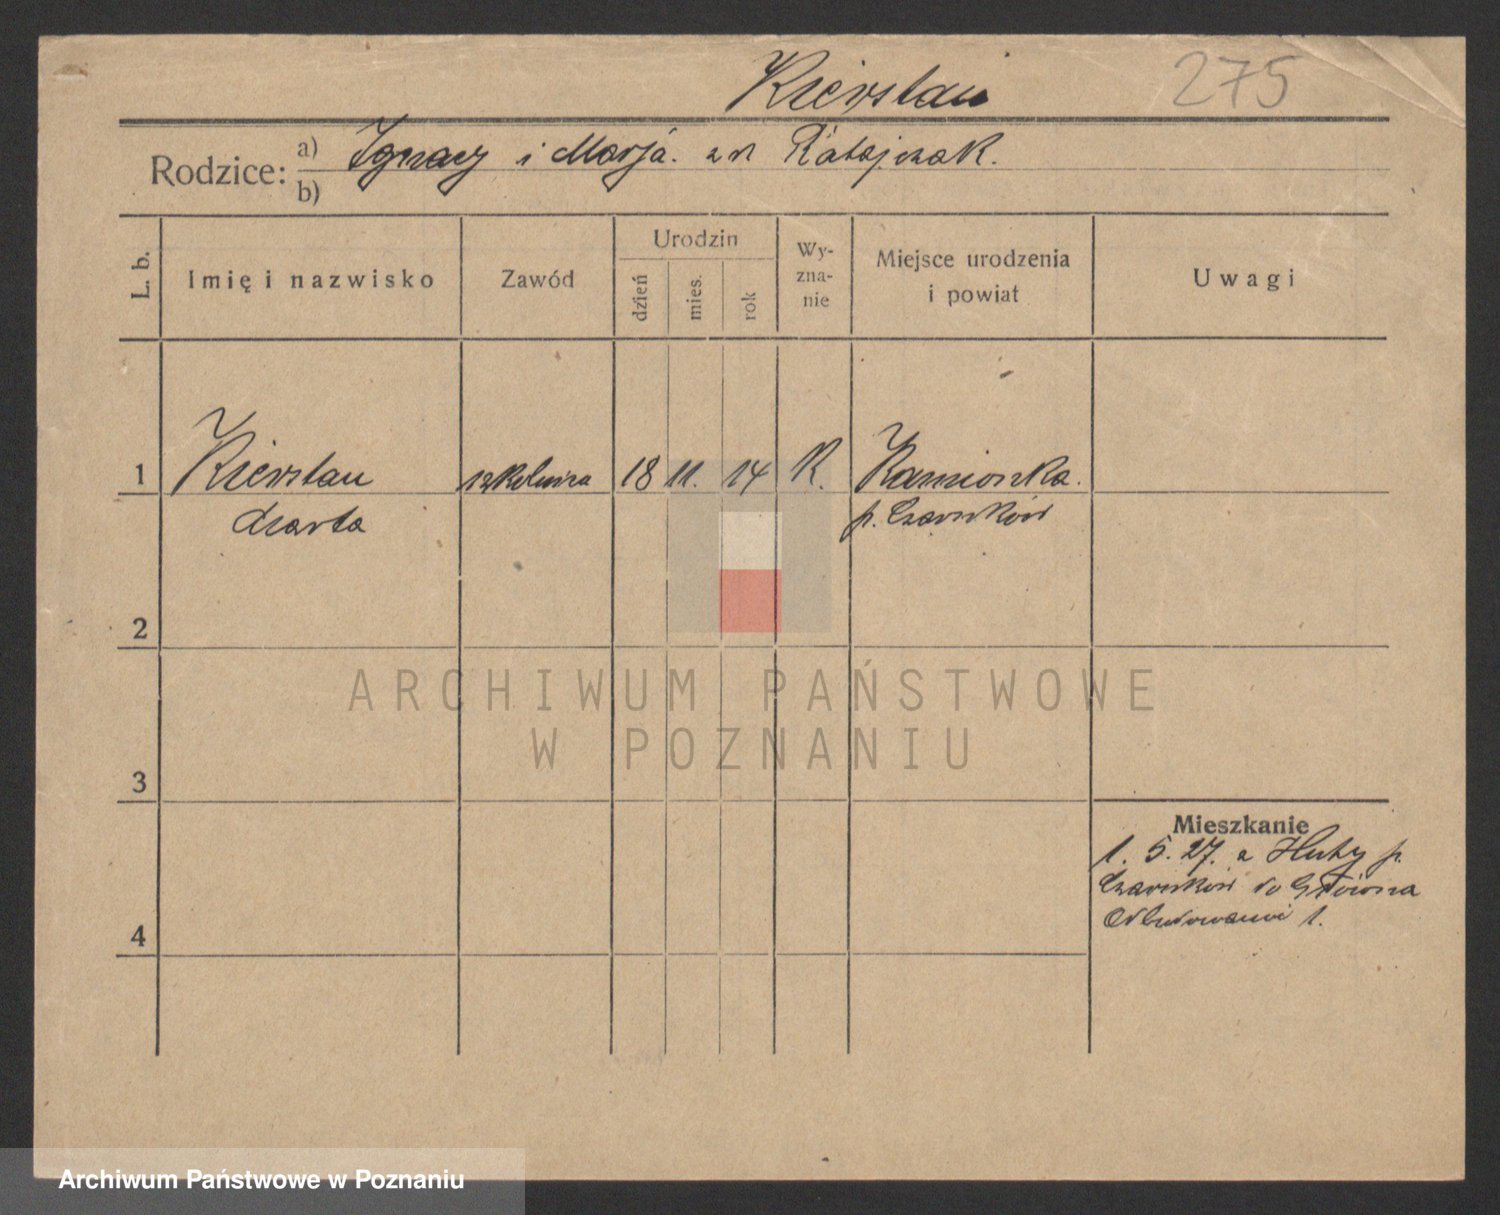 Kierstan 275
Rodzice: a) Ignacy i Marja. zd Ratajczak.
b)
L. b. Imię i nazwisko Zawód Urodzin dzień mies. rok Wy-zna-nie Miejsce urodzenia i powiat Uwagi
1 Kierstan szkolnica 18 11. 14 K. Kamionka.
Marta p. Czarnków
2
ARCHIWUM PAŃSTWOWE
W POZNANIU
3
Mieszkanie
1. 5. 27. z Huty p.
Czarnków do Główna
4 Odbudowania 1.
Archiwum Państwowe w Poznaniu